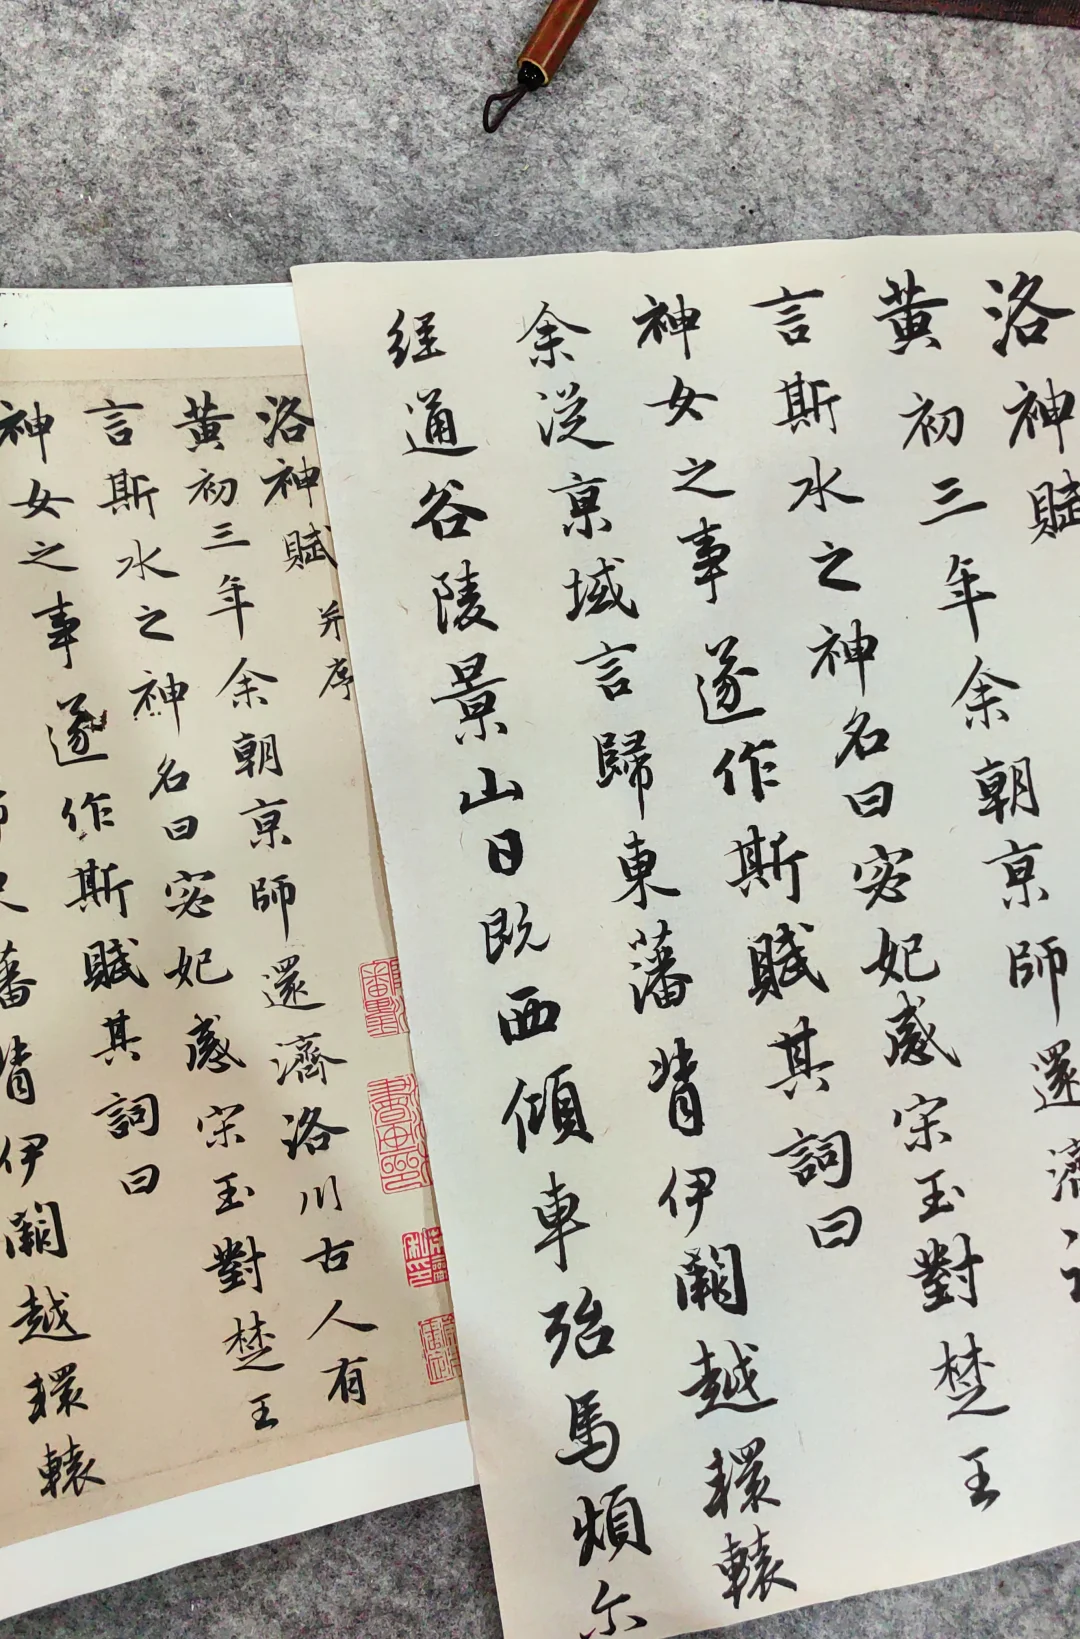 洛神賦
黄初三年余朝京師還濟
言斯水之神名曰宓妃感宋玉對楚王
神女之事遂作斯賦其詞曰
余從京域言歸東藩背伊闕越轘轅
經通谷陵景山日既西傾車殆馬煩尔
洛神賦 并序
黄初三年余朝京師還濟洛川古人有
言斯水之神名曰宓妃感宋玉對楚王
神女之事遂作斯賦其詞曰
藩背伊闕越轘轅